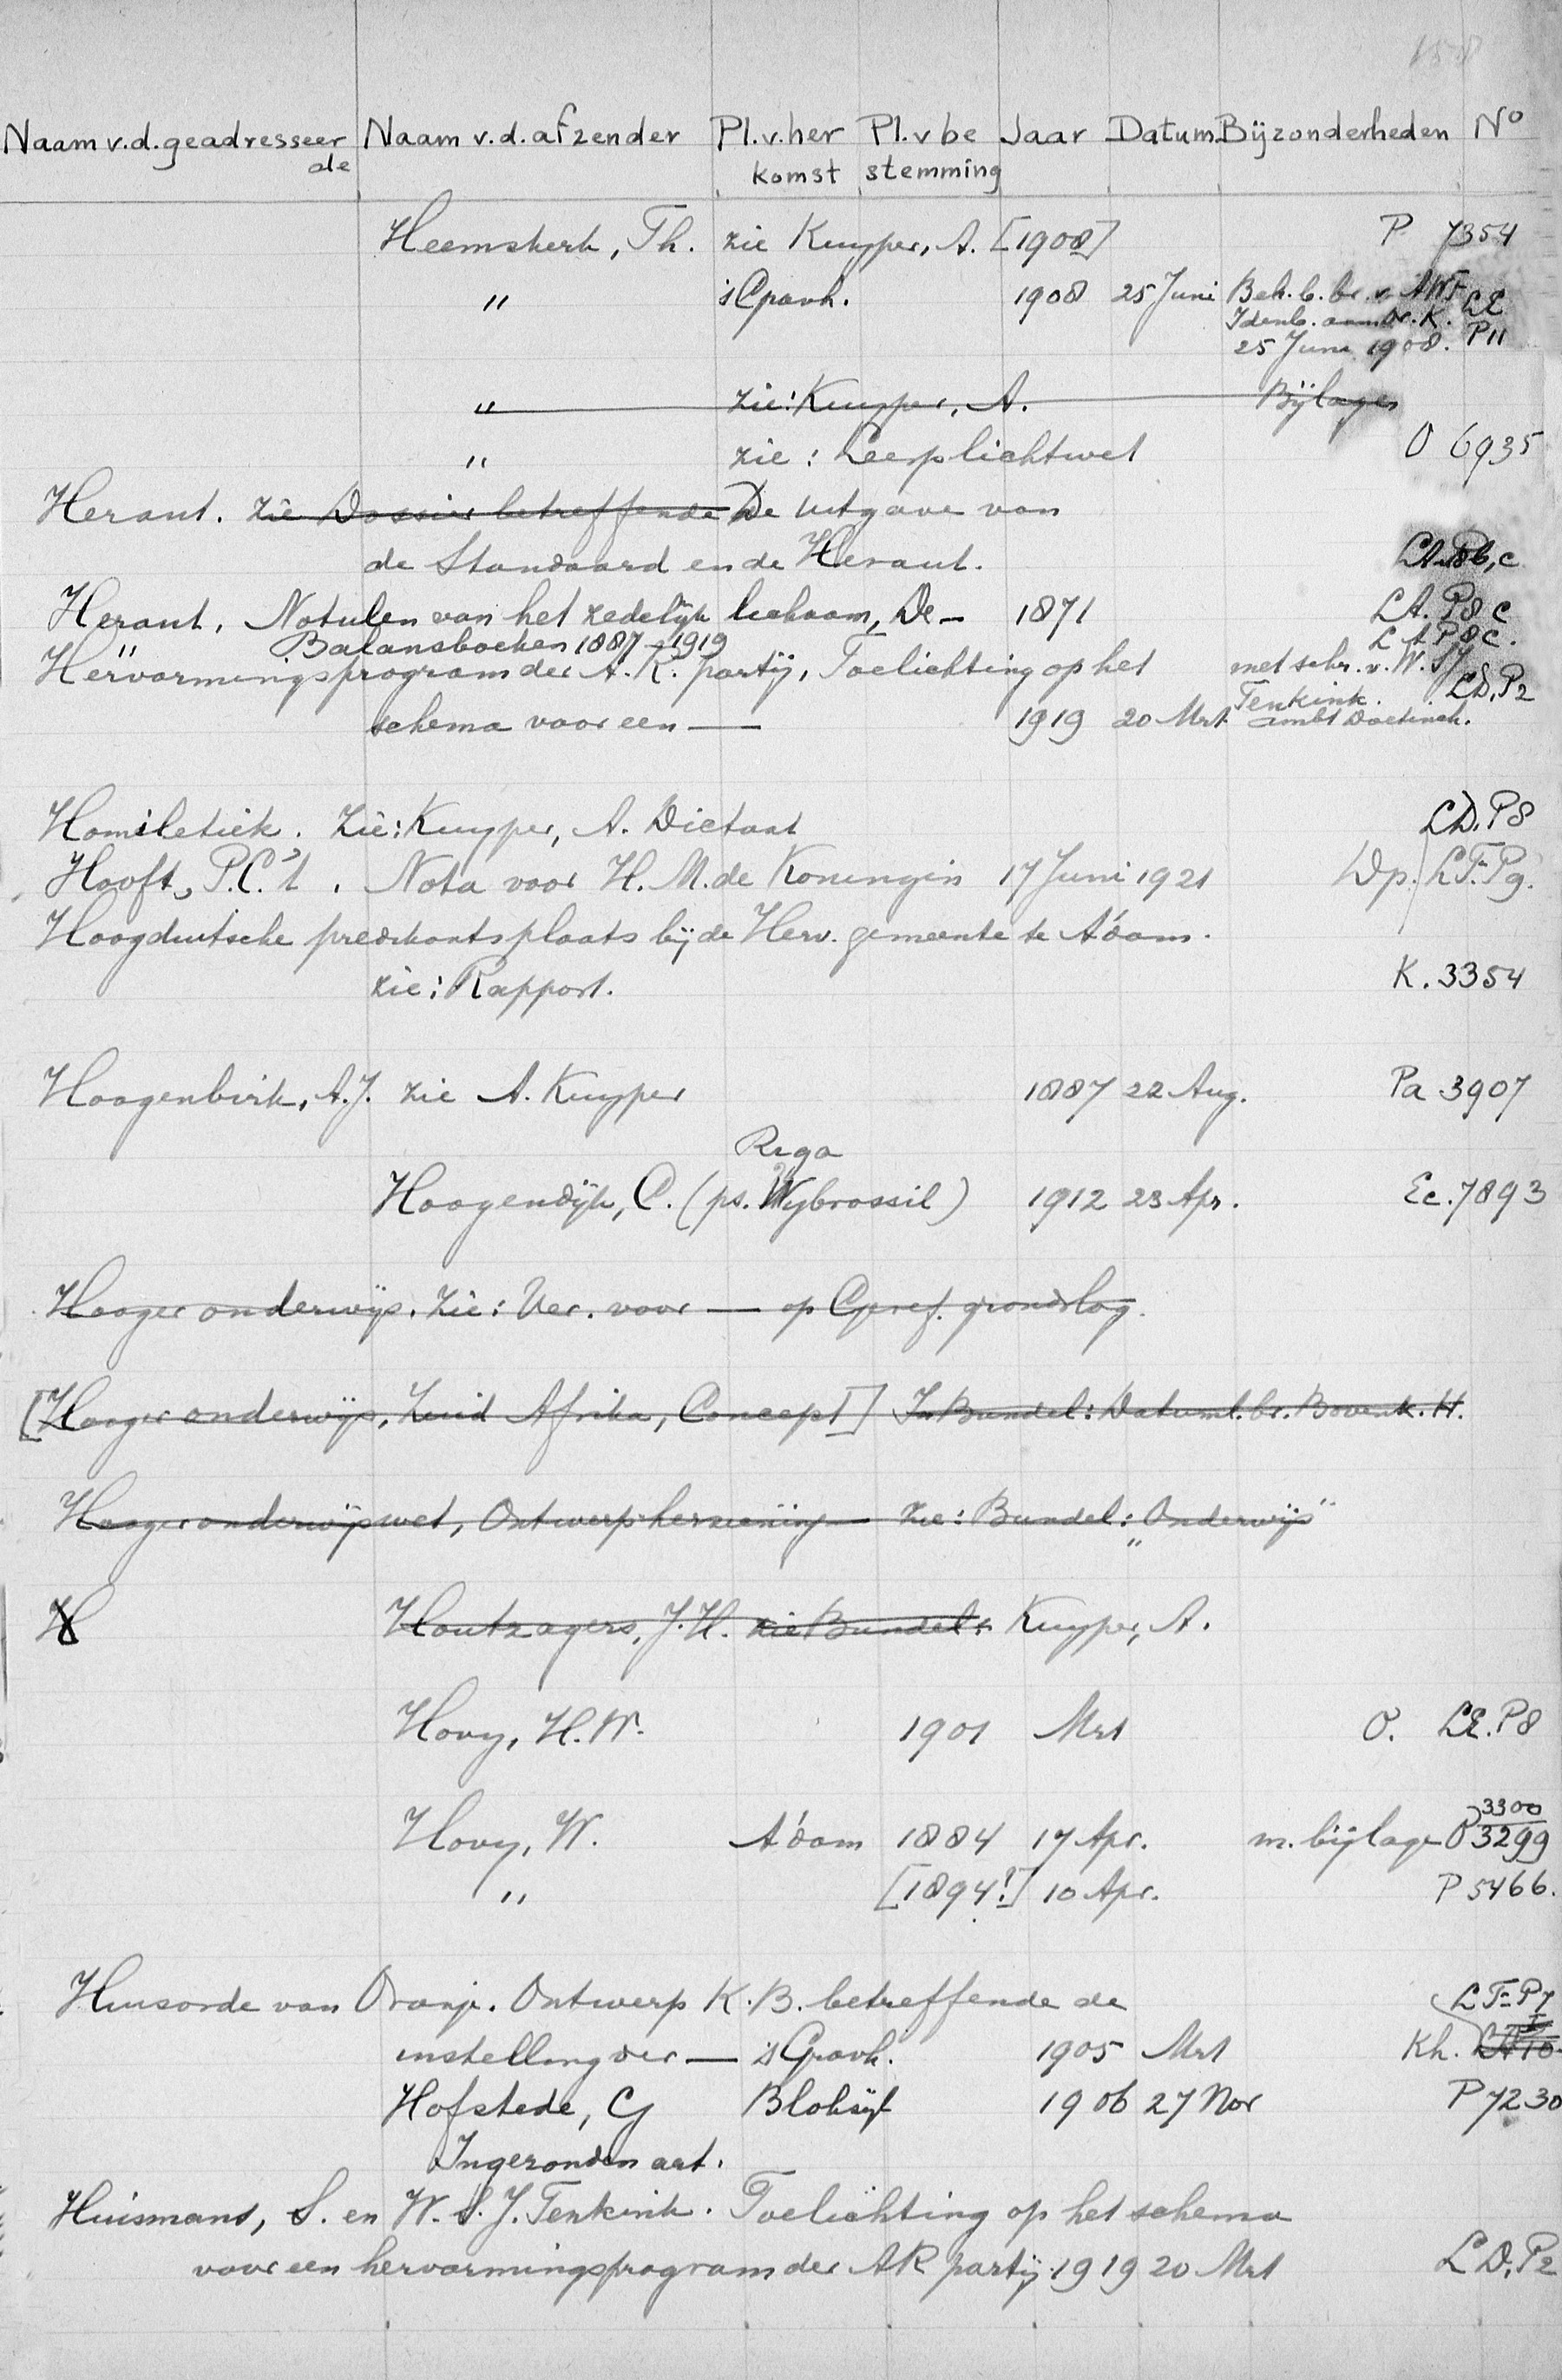 158
Naam v.d. geadresseer de Naam v.d. afzender Pl. v. her komst Pl. v be stemming Jaar Datum Bijzonderheden No
Heemskerk, Th. zie Kuyper, A. [1908] P 7354
" 's Gravh. 1908 25 Juni Beh. b. br. v. AWF
Idenb. aan Dr. K. LE
25 Juni 1908. P11
" zie: Kuyper, A. Bijlagen
" zie: Leerplichtwet O 6935
Heraut. zie Dossier betreffende De uitgave van
de Standaard en de Heraut. LA. P8b,c
Heraut, Notulen van het zedelijk lichaam, De — 1871 LA. P8c
" Balansboeken 1887-1919 LA P8c.
Hervormingsprogram der A.R. partij, Toelichting op het met schr. v. W. S J
Tenkink. LD. P2
schema voor een — 1919 20 Mrt. ambt Doetinch.
Homiletiek. Zie: Kuyper, A. Dictaat LD. P8
Hooft, P.C. 't. Nota voor H.M. de Koningin 17 Juni 1921 Dp. LF. P9.
Hoogduitsche predikantsplaats bij de Herv. gemeente te A'dam.
zie: Rapport. K. 3354
Hoogenbirk, A.J. zie A. Kuyper 1887 22 Aug. Pa 3907
Riga
Hoogendijk, C. (ps. Wybrossil) 1912 23 Apr. Ec. 7893
Hooger onderwijs. Zie: Ver. voor — op Geref. grondslag.
[Hooger onderwijs, Zuid Afrika, Concept] In Bundel: Datuml. br. Bovenk. H.
Hooger onderwijswet, Ontwerp herziening — zie: Bundel: „Onderwijs"
H Houtzagers, J.H. zie Bundel: Kuyper, A.
Hovy, H.W. 1901 Mrt O. LE. P8
Hovy, W. A'dam 1884 17 Apr. m. bijlage P 3300 3299
" [1894?] 10 Apr. P 5466.
Huisorde van Oranje. Ontwerp K.B. betreffende de LF. P7
instelling der — 's Gravh. 1905 Mrt Kh.
Hofstede, G Blokzijl 1906 27 Nov P 7230
Ingezonden art.
Huismans, S. en W.S.J. Tenkink. Toelichting op het schema
voor een hervormingsprogram der AR partij. 1919 20 Mrt LD. P2